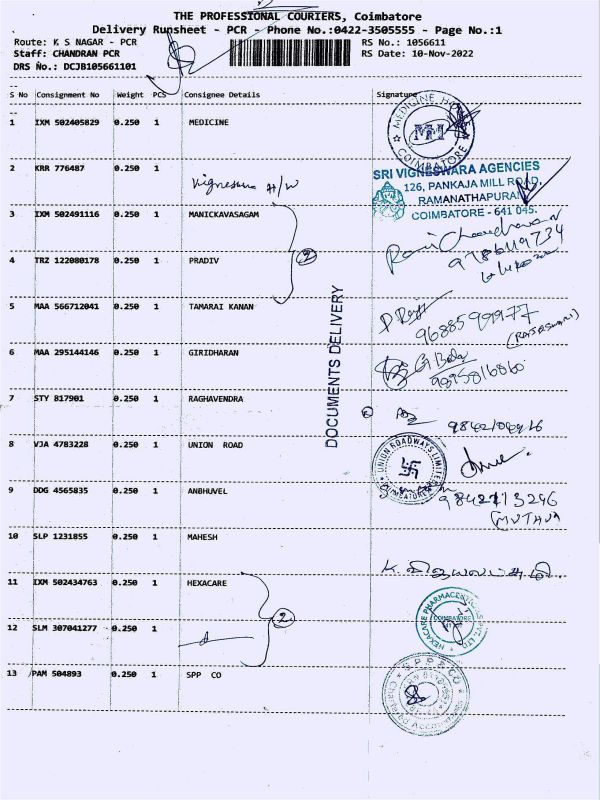 THE PROFESSIONAL COURIERS, Coimbatore
Delivery Runsheet - PCR - Phone No.:0422-3505555 - Page No.:1
Route: K S NAGAR - PCR RS No.: 1056611
Staff: CHANDRAN PCR RS Date: 10-Nov-2022
DRS No.: DCJB105661101
S No Consignment No Weight PCS Consignee Details Signature
1 IXM 502405829 0.250 1 MEDICINE
MEDICINE HOUSE
COIMBATORE
2 KRR 776487 0.250 1 Vigneswara H/W
SRI VIGNESWARA AGENCIES
126, PANKAJA MILL ROAD,
RAMANATHAPURAM
COIMBATORE - 641 045.
3 IXM 502491116 0.250 1 MANICKAVASAGAM
2
4 TRZ 122080178 0.250 1 PRADIV
DOCUMENTS DELIVERY
5 MAA 566712041 0.250 1 TAMARAI KANAN
9688599977
6 MAA 295144146 0.250 1 GIRIDHARAN
7 STY 817901 0.250 1 RAGHAVENDRA
8 VJA 4783228 0.250 1 UNION ROAD
UNION ROADWAYS LIMITED
COIMBATORE
9 DDG 4565835 0.250 1 ANBHUVEL
9842713246
10 SLP 1231855 0.250 1 MAHESH
11 IXM 502434763 0.250 1 HEXACARE
HEXACARE PHARMACEUTICALS PVT. LTD
COIMBATORE
2
12 SLM 307041277 0.250 1
13 PAM 504893 0.250 1 SPP CO
SPP & CO